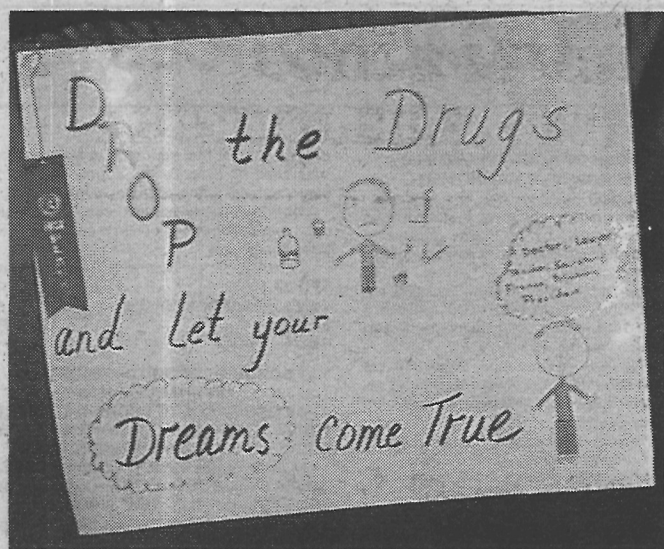 DROP the Drugs
and let your
Dreams come True
A Doctor, Lawyer
President